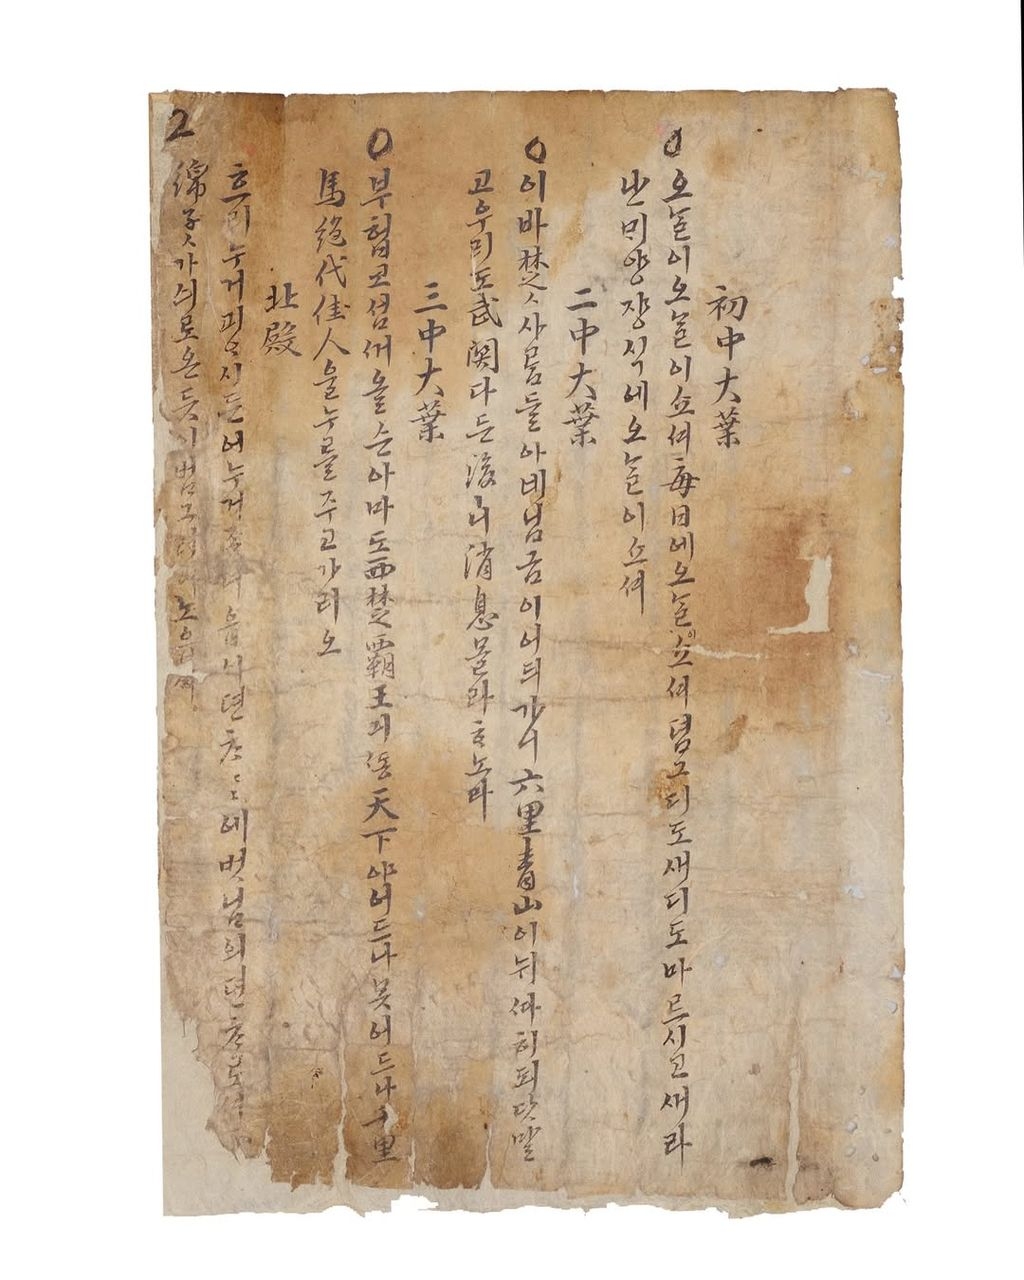 初中大葉
오늘이오늘이쇼셔每日에오늘이쇼셔뎜그디도새디도마르시고새라
난ᄆᆡ양쟝식에오늘이쇼셔
二中大葉
이바楚ㅅ사ᄅᆞᆷ들아네님금이어듸가니六里靑山이뉘ᄯᅡ히되닷말
고우리도武關다든後ㅣ니消息몰라ᄒᆞ노라
三中大葉
부헙코섬ᄭᅥ올슨아마도西楚覇王긔ᄯᅩᆼ天下야어드나못어드나千里
馬絶代佳人을누를주고가리오
北殿
흐리누거괴오시든어누거
에벗님의뎐ᄎᆞ로셔
綿
가싀로온듯시범그려노
2